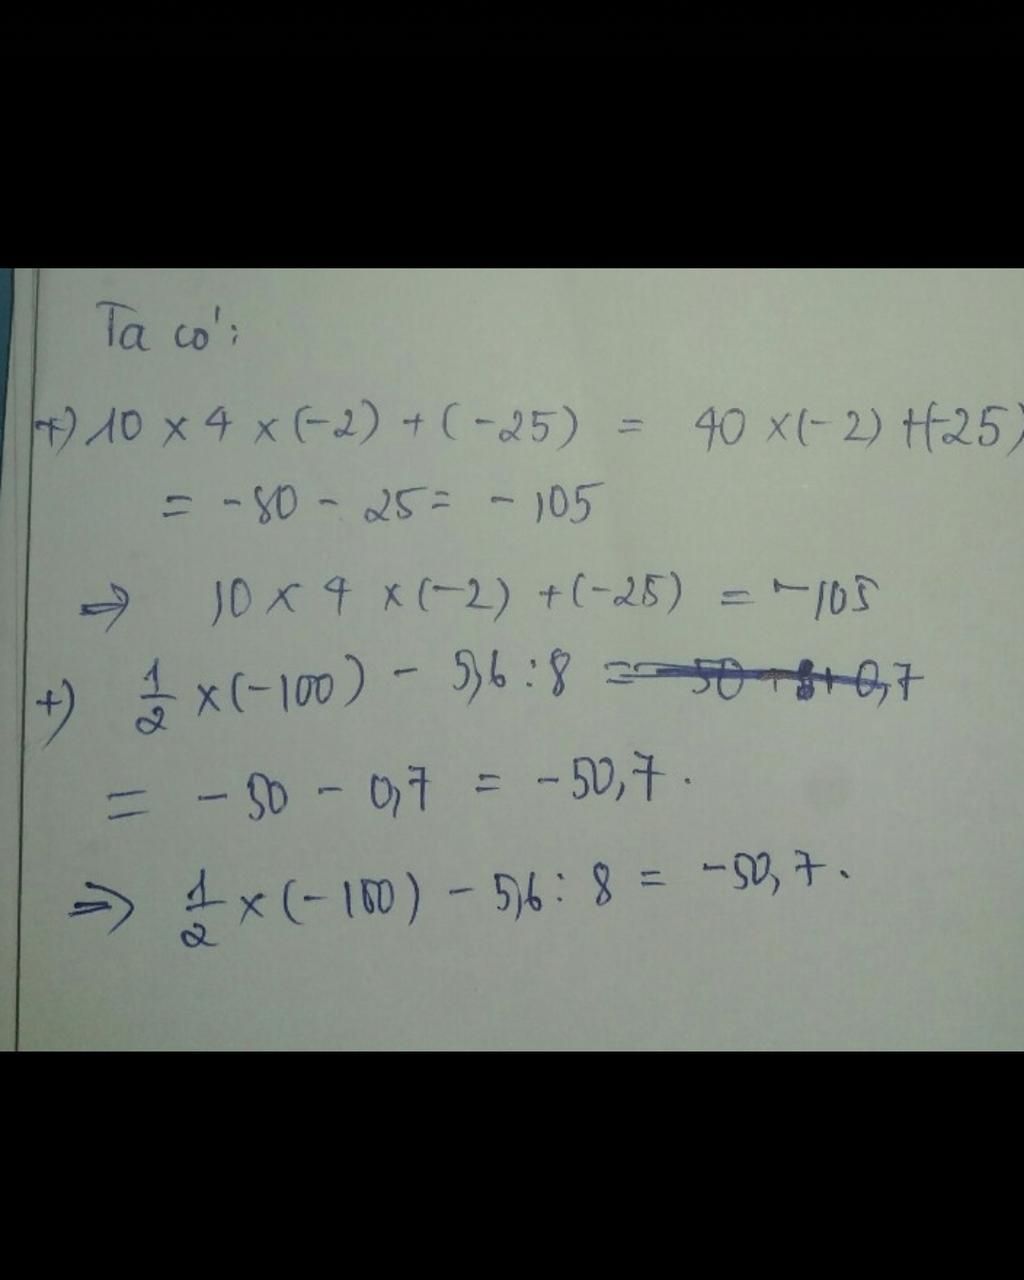 Ta có:
+) 10 × 4 × (-2) + (-25) = 40 × (-2) + (-25)
= -80 - 25 = -105
⇒ 10 × 4 × (-2) + (-25) = -105
+) 1/2 × (-100) - 5,6 : 8 =
= -50 - 0,7 = -50,7.
⇒ 1/2 × (-100) - 5,6 : 8 = -50,7.